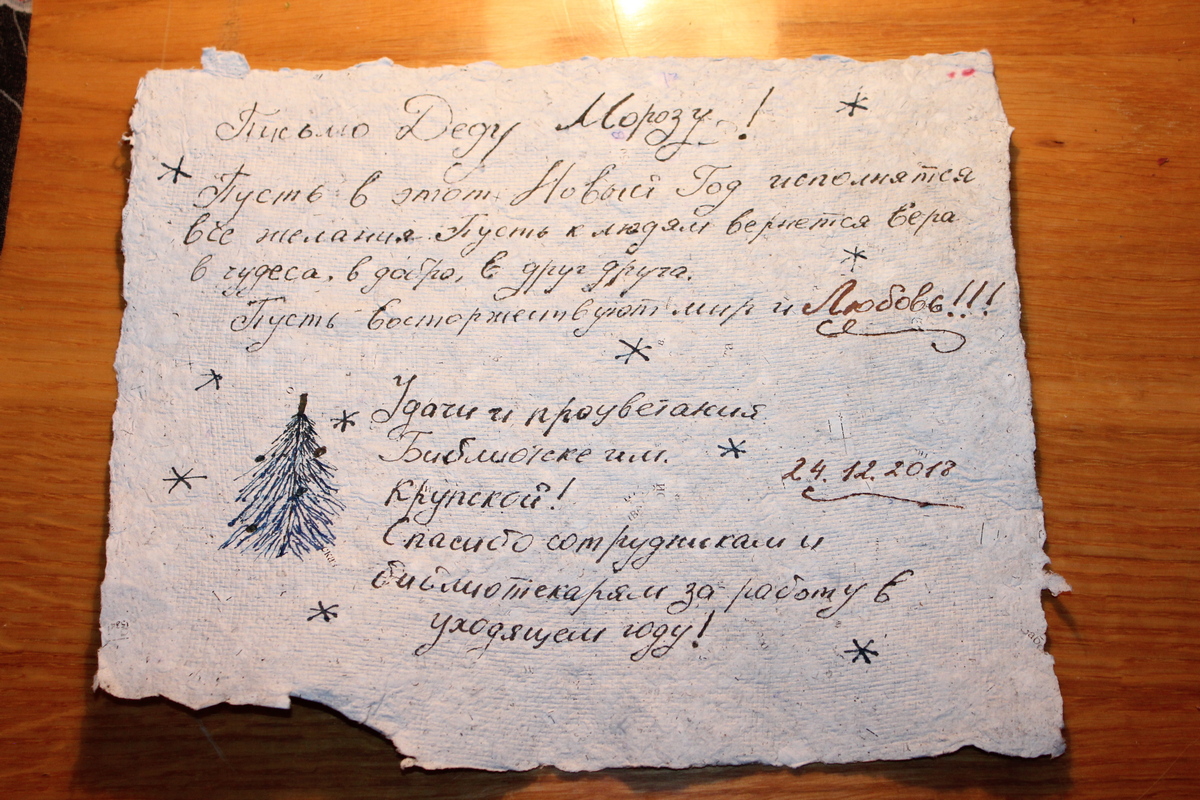 Письмо Деду Морозу!
Пусть в этот Новый Год исполнятся
все желания. Пусть к людям вернется вера
в чудеса, в добро, в друг друга.
Пусть восторжествуют мир и Любовь!!!
Удачи и процветания
Библиотеке им.
Крупской!
24.12.2018
Спасибо сотрудникам и
библиотекарям за работу в
уходящем году!